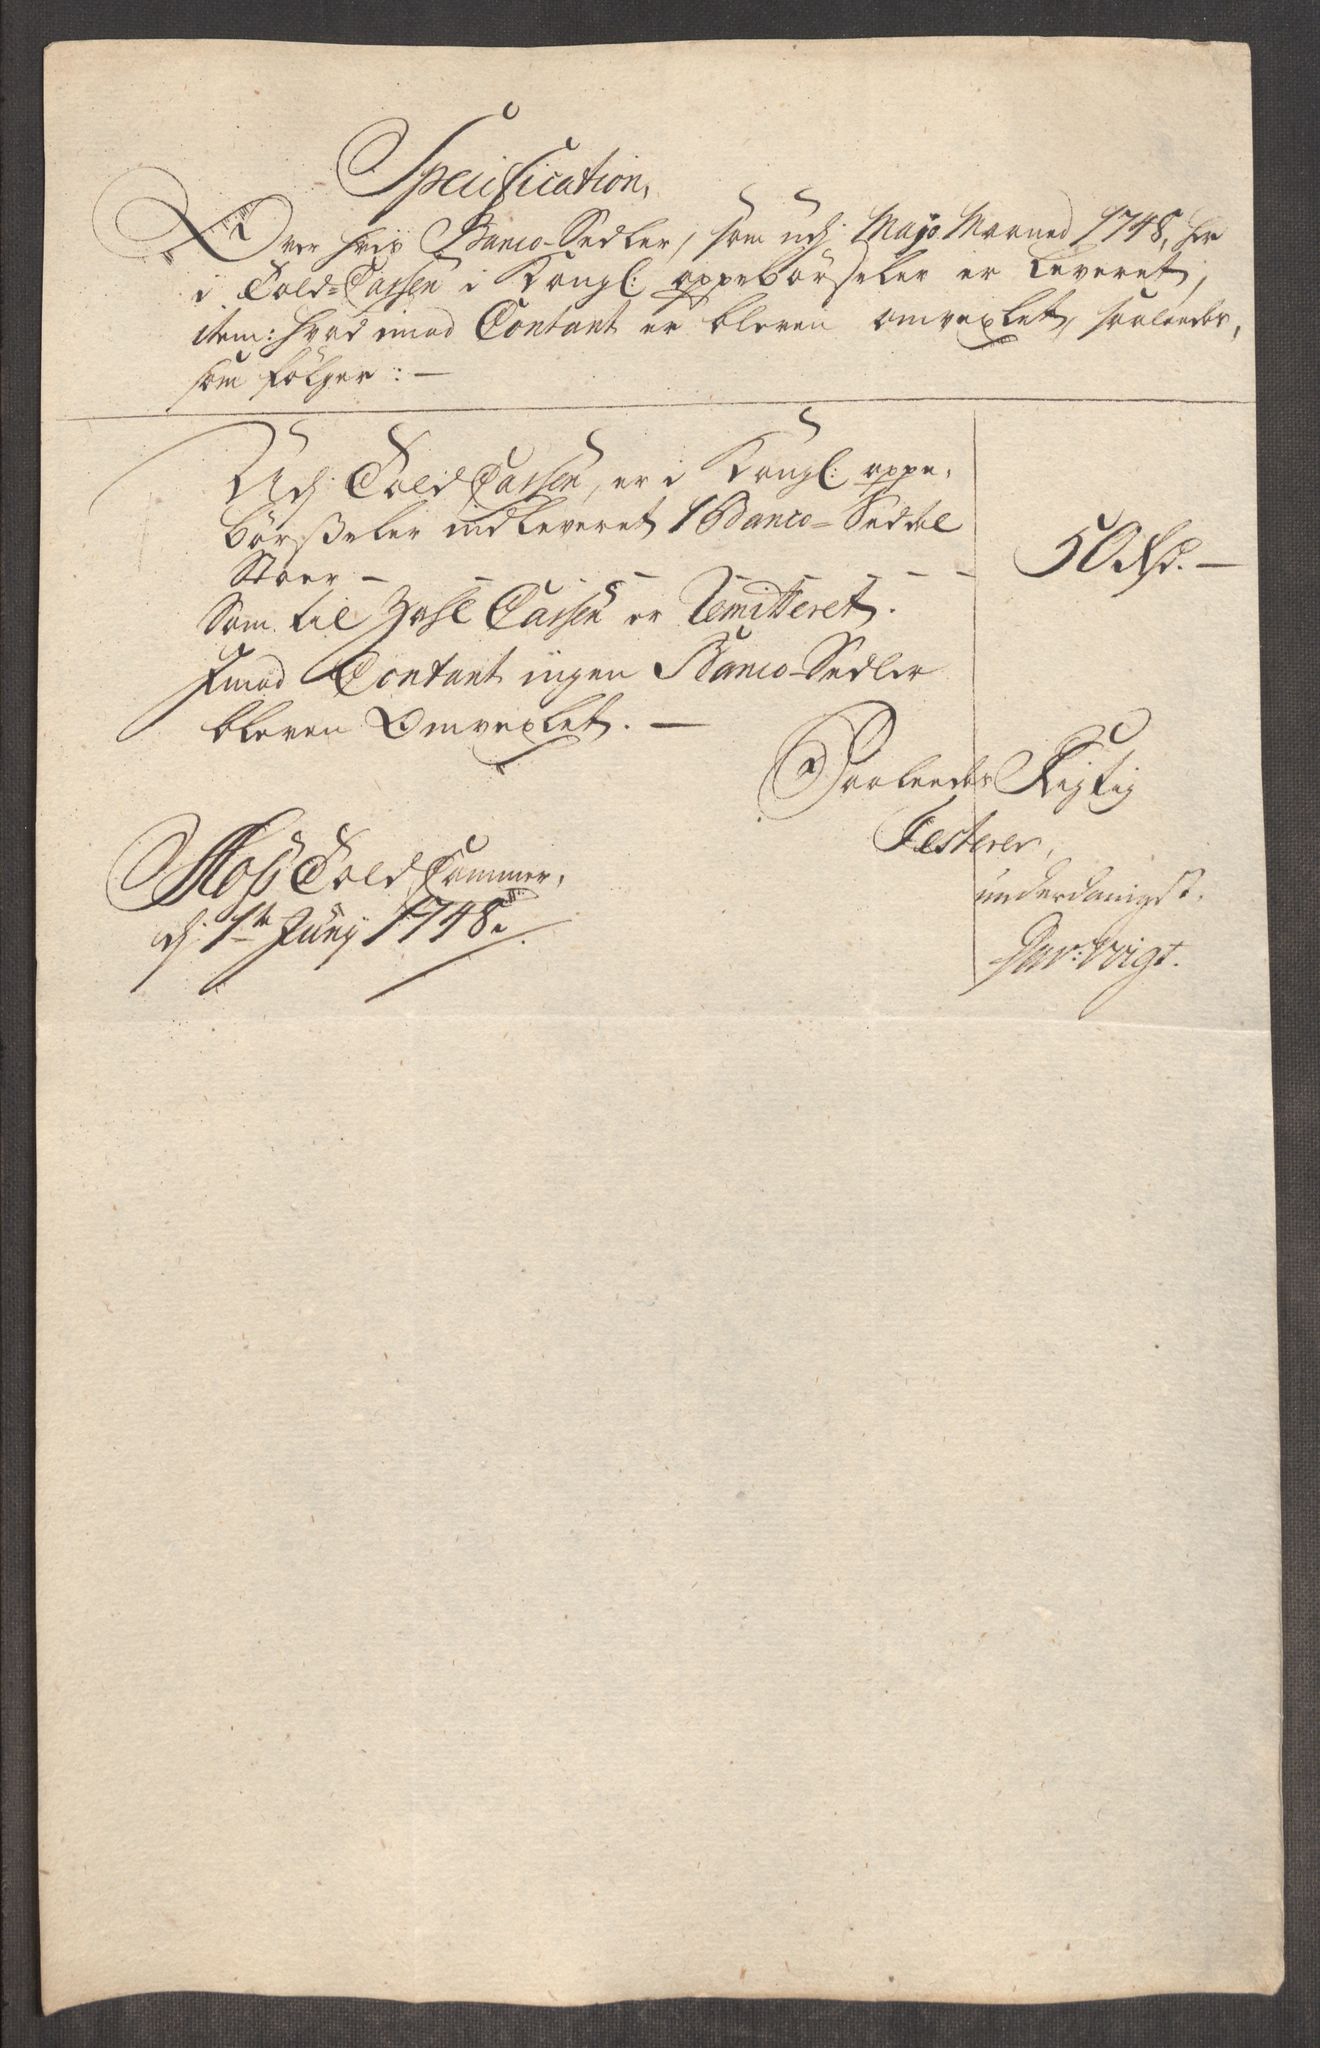 Specification,
Over hvis Banco-Sedler, som udj Majo Maaned 1748, her
i Told-Cassen i Kongl: oppebörseler er Leveret,
item: hvad imod Contant er bleven omvexlet, saaledes,
som fölger: —
Udj Told Cassen, er i Kongl: oppe-
börßeler indleveret 1 Banco-Seddel
Stoer — 50 Rd. —
Som til Zahl Cassen er Remitteret.
Imod Contant ingen Banco-Sedler
bleven Omvexlet. —
Saaleedes Rigtig
Testerer,
underdanigst.
Voigt.
Moss Told Cammer,
dj 1te Junij 1748.